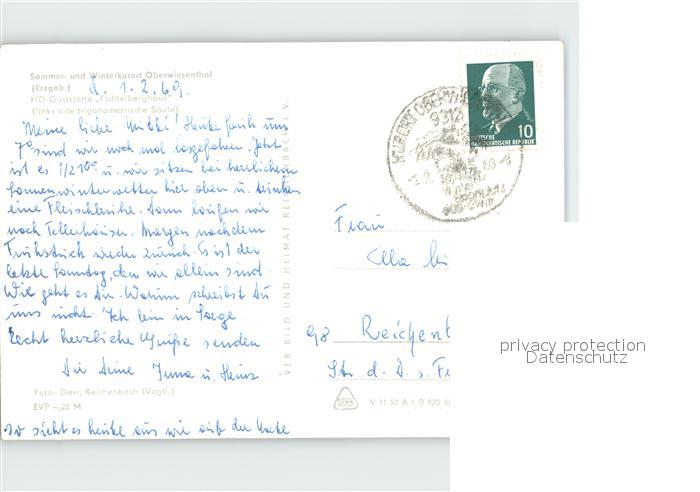 Sommer- und Winterkurort Oberwiesenthal
(Erzgeb.)
d. 1.2.69.
HO-Gaststätte "Fichtelberghaus"
(links alte trigonometrische Säule)
Meine liebe Mutti! Heute früh um
7° sind wir noch mal losgefahren. Jetzt
ist es 1/2 10° u. wir sitzen bei herrlichem
Sonnenwinterwetter hier oben u. trinken
eine Fleischbrühe. Dann laufen wir
nach Tellerhäuser. Morgen nach dem
Frühstück wieder zurück. Es ist der
letzte Sonntag, den wir allein sind.
Wie geht es Dir. Warum schreibst Du
uns nicht. Ich bin in Sorge.
Recht herzliche Grüße senden
Dir Deine u. Heinz
Foto: Darr, Reichenbach (Vogtl.)
EVP -,25 M
So sieht es heute aus wie auf der Karte
VEB BILD UND HEIMAT REICHENBACH I. V.
KURORT OBERWIESENTHAL
9312
10
DEUTSCHE
DEMOKRATISCHE REPUBLIK
Frau
98 Reichenb
Str. d. D. s. F
V 11 50 A 1 B 920 6
privacy protection
Datenschutz